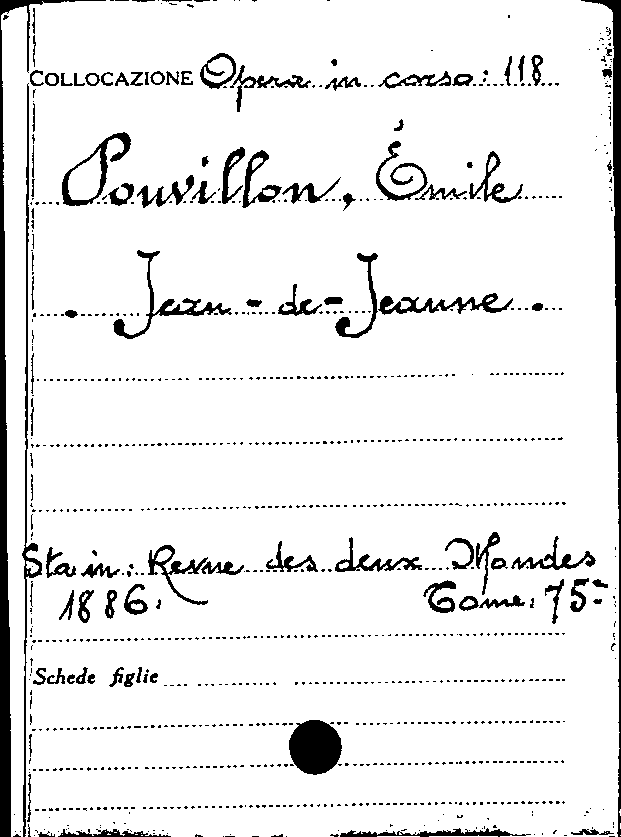 COLLOCAZIONE Opera in corso: 118
Pouvillon, Émile
. Jean-de-Jeanne.
Sta in: Revue des deux Mondes
1886. Tome: 75º
Schede figlie